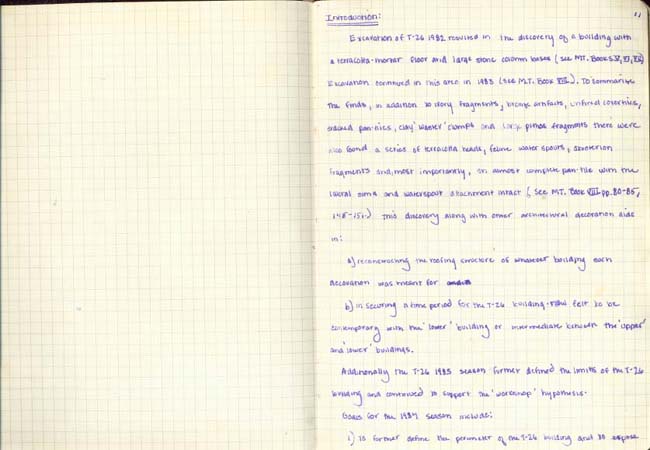 11
Introduction:
Excavation of T-26 1982 resulted in the discovery of a building with
a terracotta-mortar floor and large stone column bases (see M.T. Books
Excavation continued in this area in 1983 (see M.T. Book VIII). To summarize
the finds, in addition to ivory fragments, bronze artifacts, unfired cover tiles,
stacked pan-tiles, clay 'waster' clumps and large pithos fragments there were
also found a series of terracotta heads, feline water spouts, akroterion
fragments and, most importantly, an almost complete pan-tile with the
lateral sima and waterspout attachment intact (see M.T. Book VIII pp. 80-85,
148-151.) This discovery along with other architectural decoration aids
in:
a) reconstructing the roofing structure of whatever building each
decoration was meant for
b) in securing a time period for the T-26 building - now felt to be
contemporary with the 'lower' building or intermediate between the 'upper'
and 'lower' buildings.
Additionally the T-26 1983 season further defined the limits of the T-26
building and continued to support the 'workshop' hypothesis.
Goals for the 1984 season include:
1) to further define the perimeter of the T-26 building and to expose